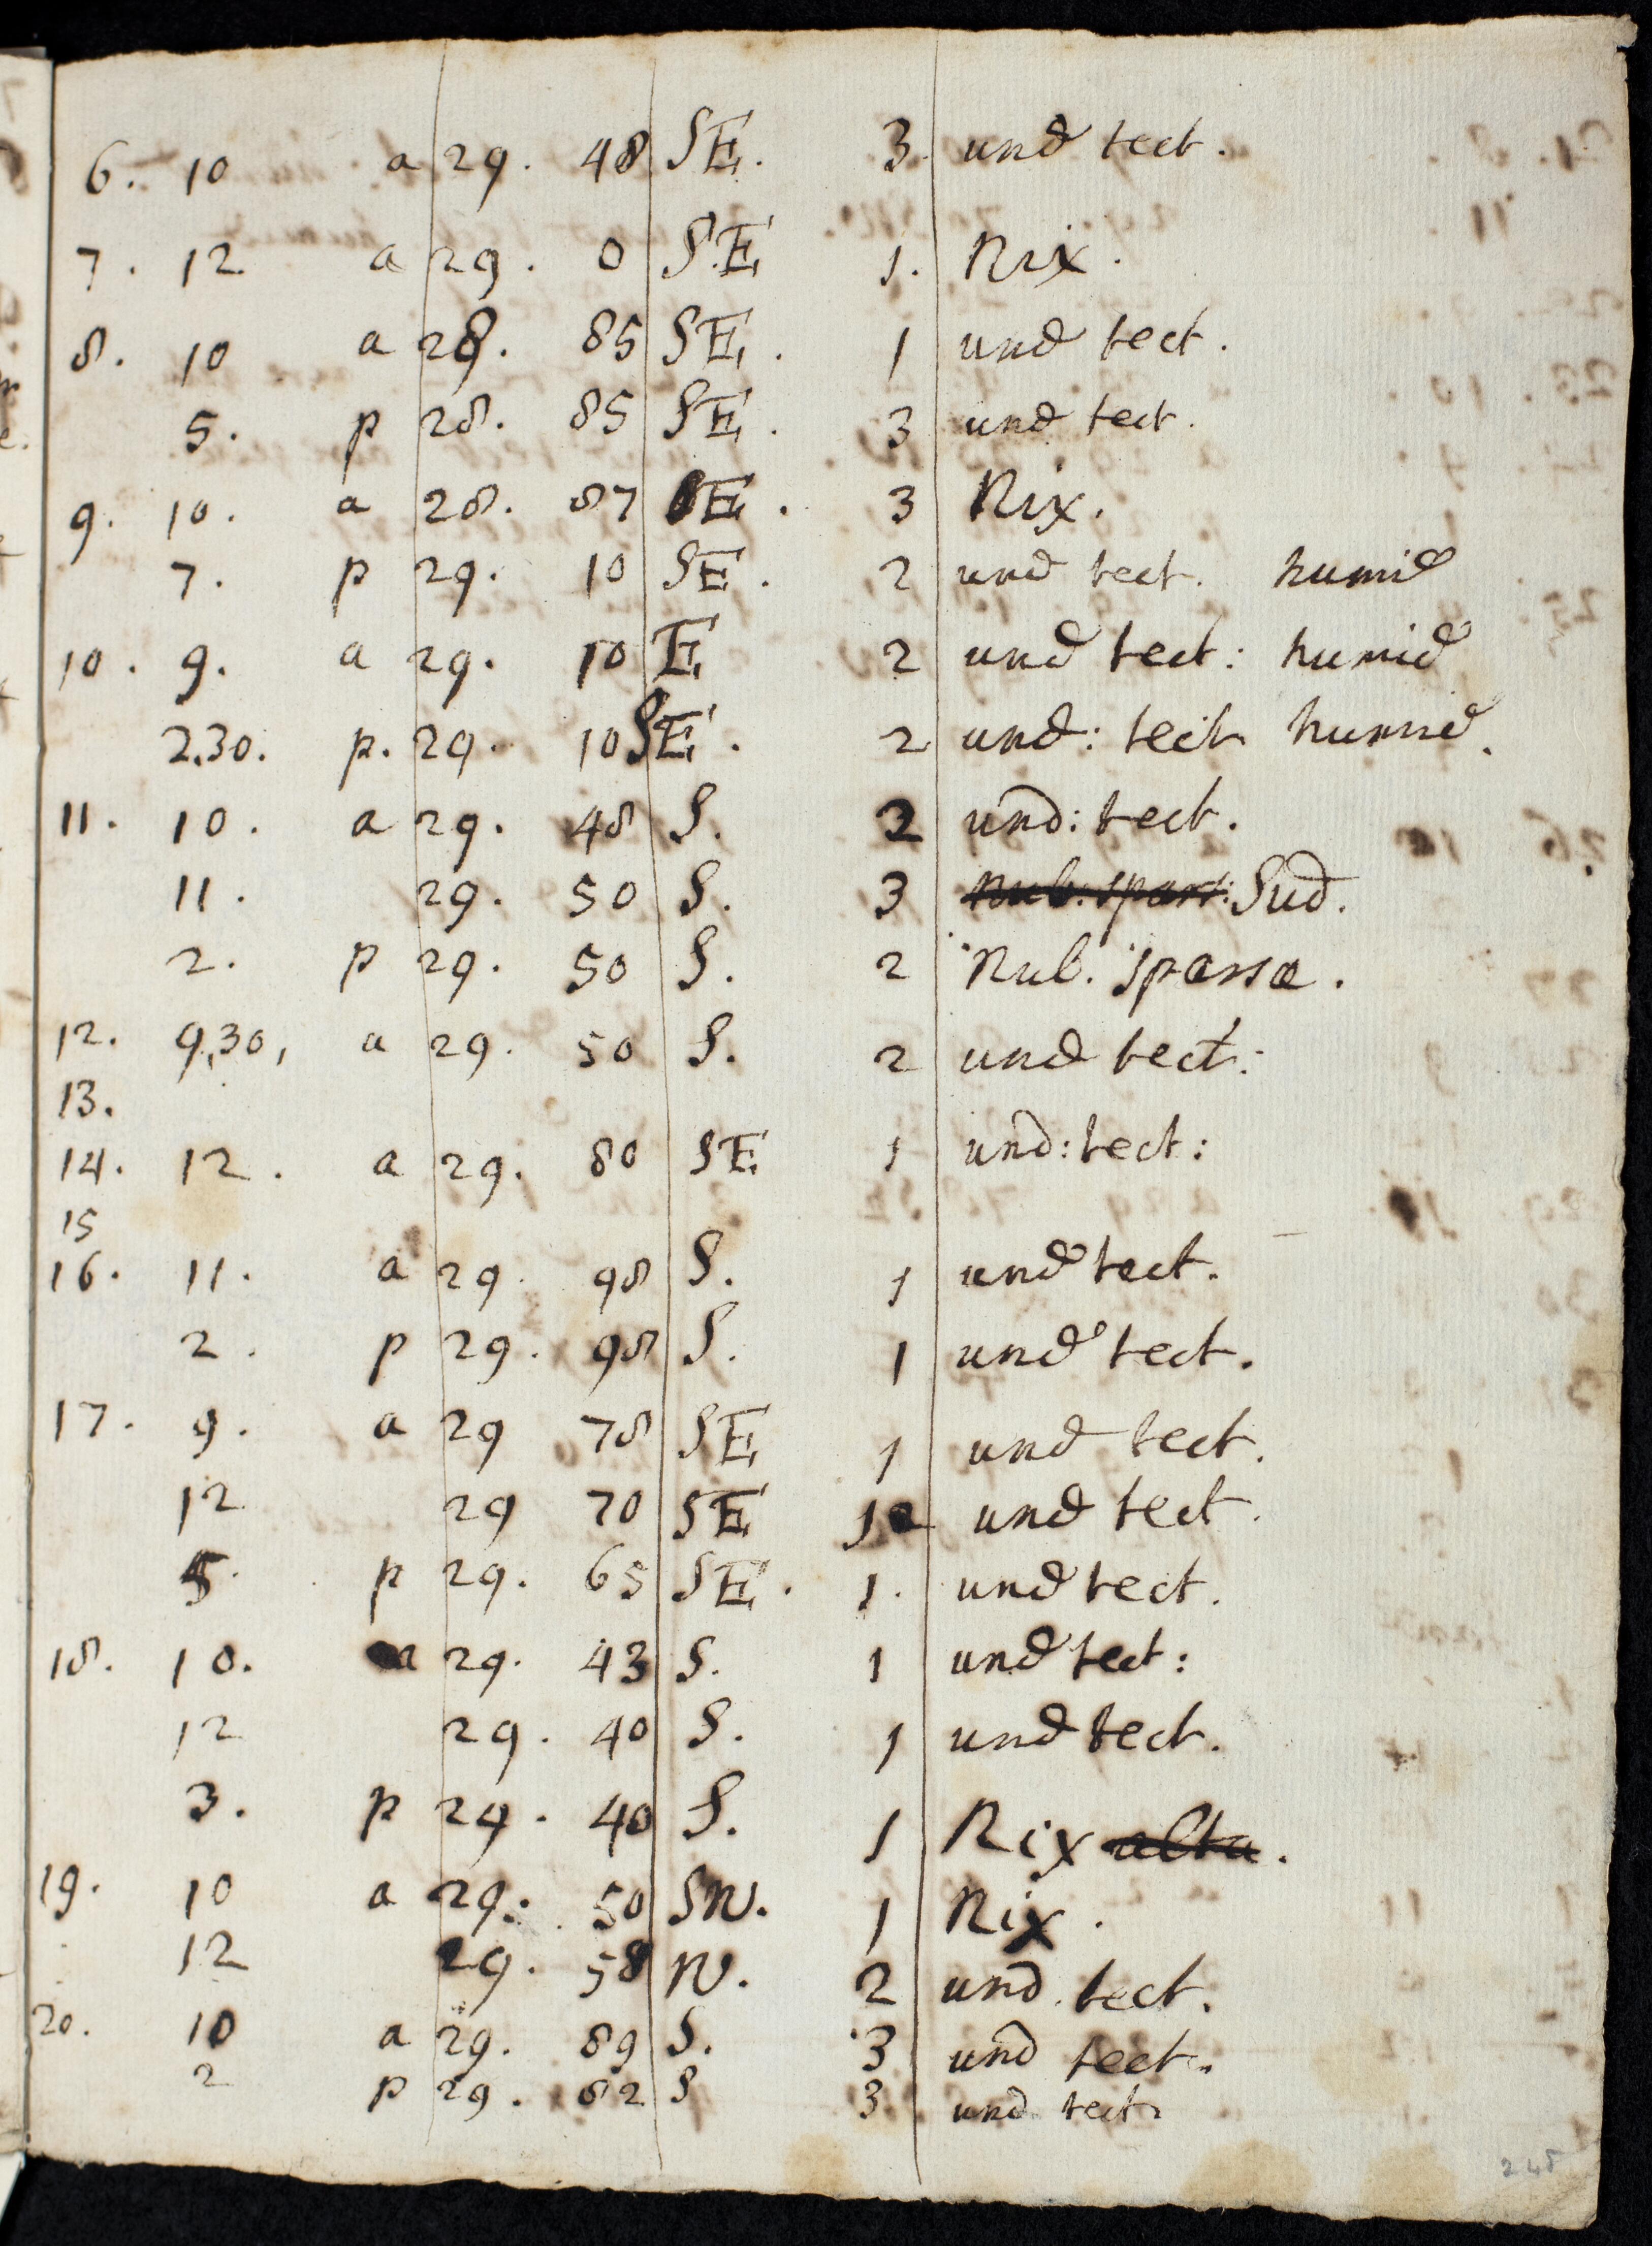 6. 10 a 29. 48 SE. 3. und tect.
7. 12 a 29. 0 S.E 1. Nix.
8. 10 a 28. 85 SE. 1 und tect.
5. p 28. 85 SE. 3 und tect.
9. 10. a 28. 87 SE. 3 Nix.
7. p 29. 10 SE. 2 und tect. humid
10. 9. a 29. 10 E 2 und tect: humid
2.30. p. 29. 10 SE. 2 und: tect humid.
11. 10. a 29. 48 S. 2 und: tect.
11. 29. 50 S. 3 Nub: spars: Sud.
2. p 29. 50 S. 2 Nub. sparsæ.
12. 9,30, a 29. 50 S. 2 und tect:
13.
14. 12. a 29. 80 SE 1 und: tect:
15
16. 11. a 29. 98 S. 1 und tect.
2. p 29. 98 S. 1 und tect.
17. 9. a 29 78 SE 1 und tect.
12 29 70 SE 1 und tect.
5. p 29. 65 SE. 1. und tect.
18. 10. a 29. 43 S. 1 und tect:
12 29. 40 S. 1 und tect.
3. p 29. 40 S. 1 Nix alta.
19. 10 a 29. 50 SW. 1 Nix.
12 29. 58 W. 2 und. tect.
20. 10 a 29. 89 S. 3 und tect.
2 p 29. 82 S 3 und tect.
248